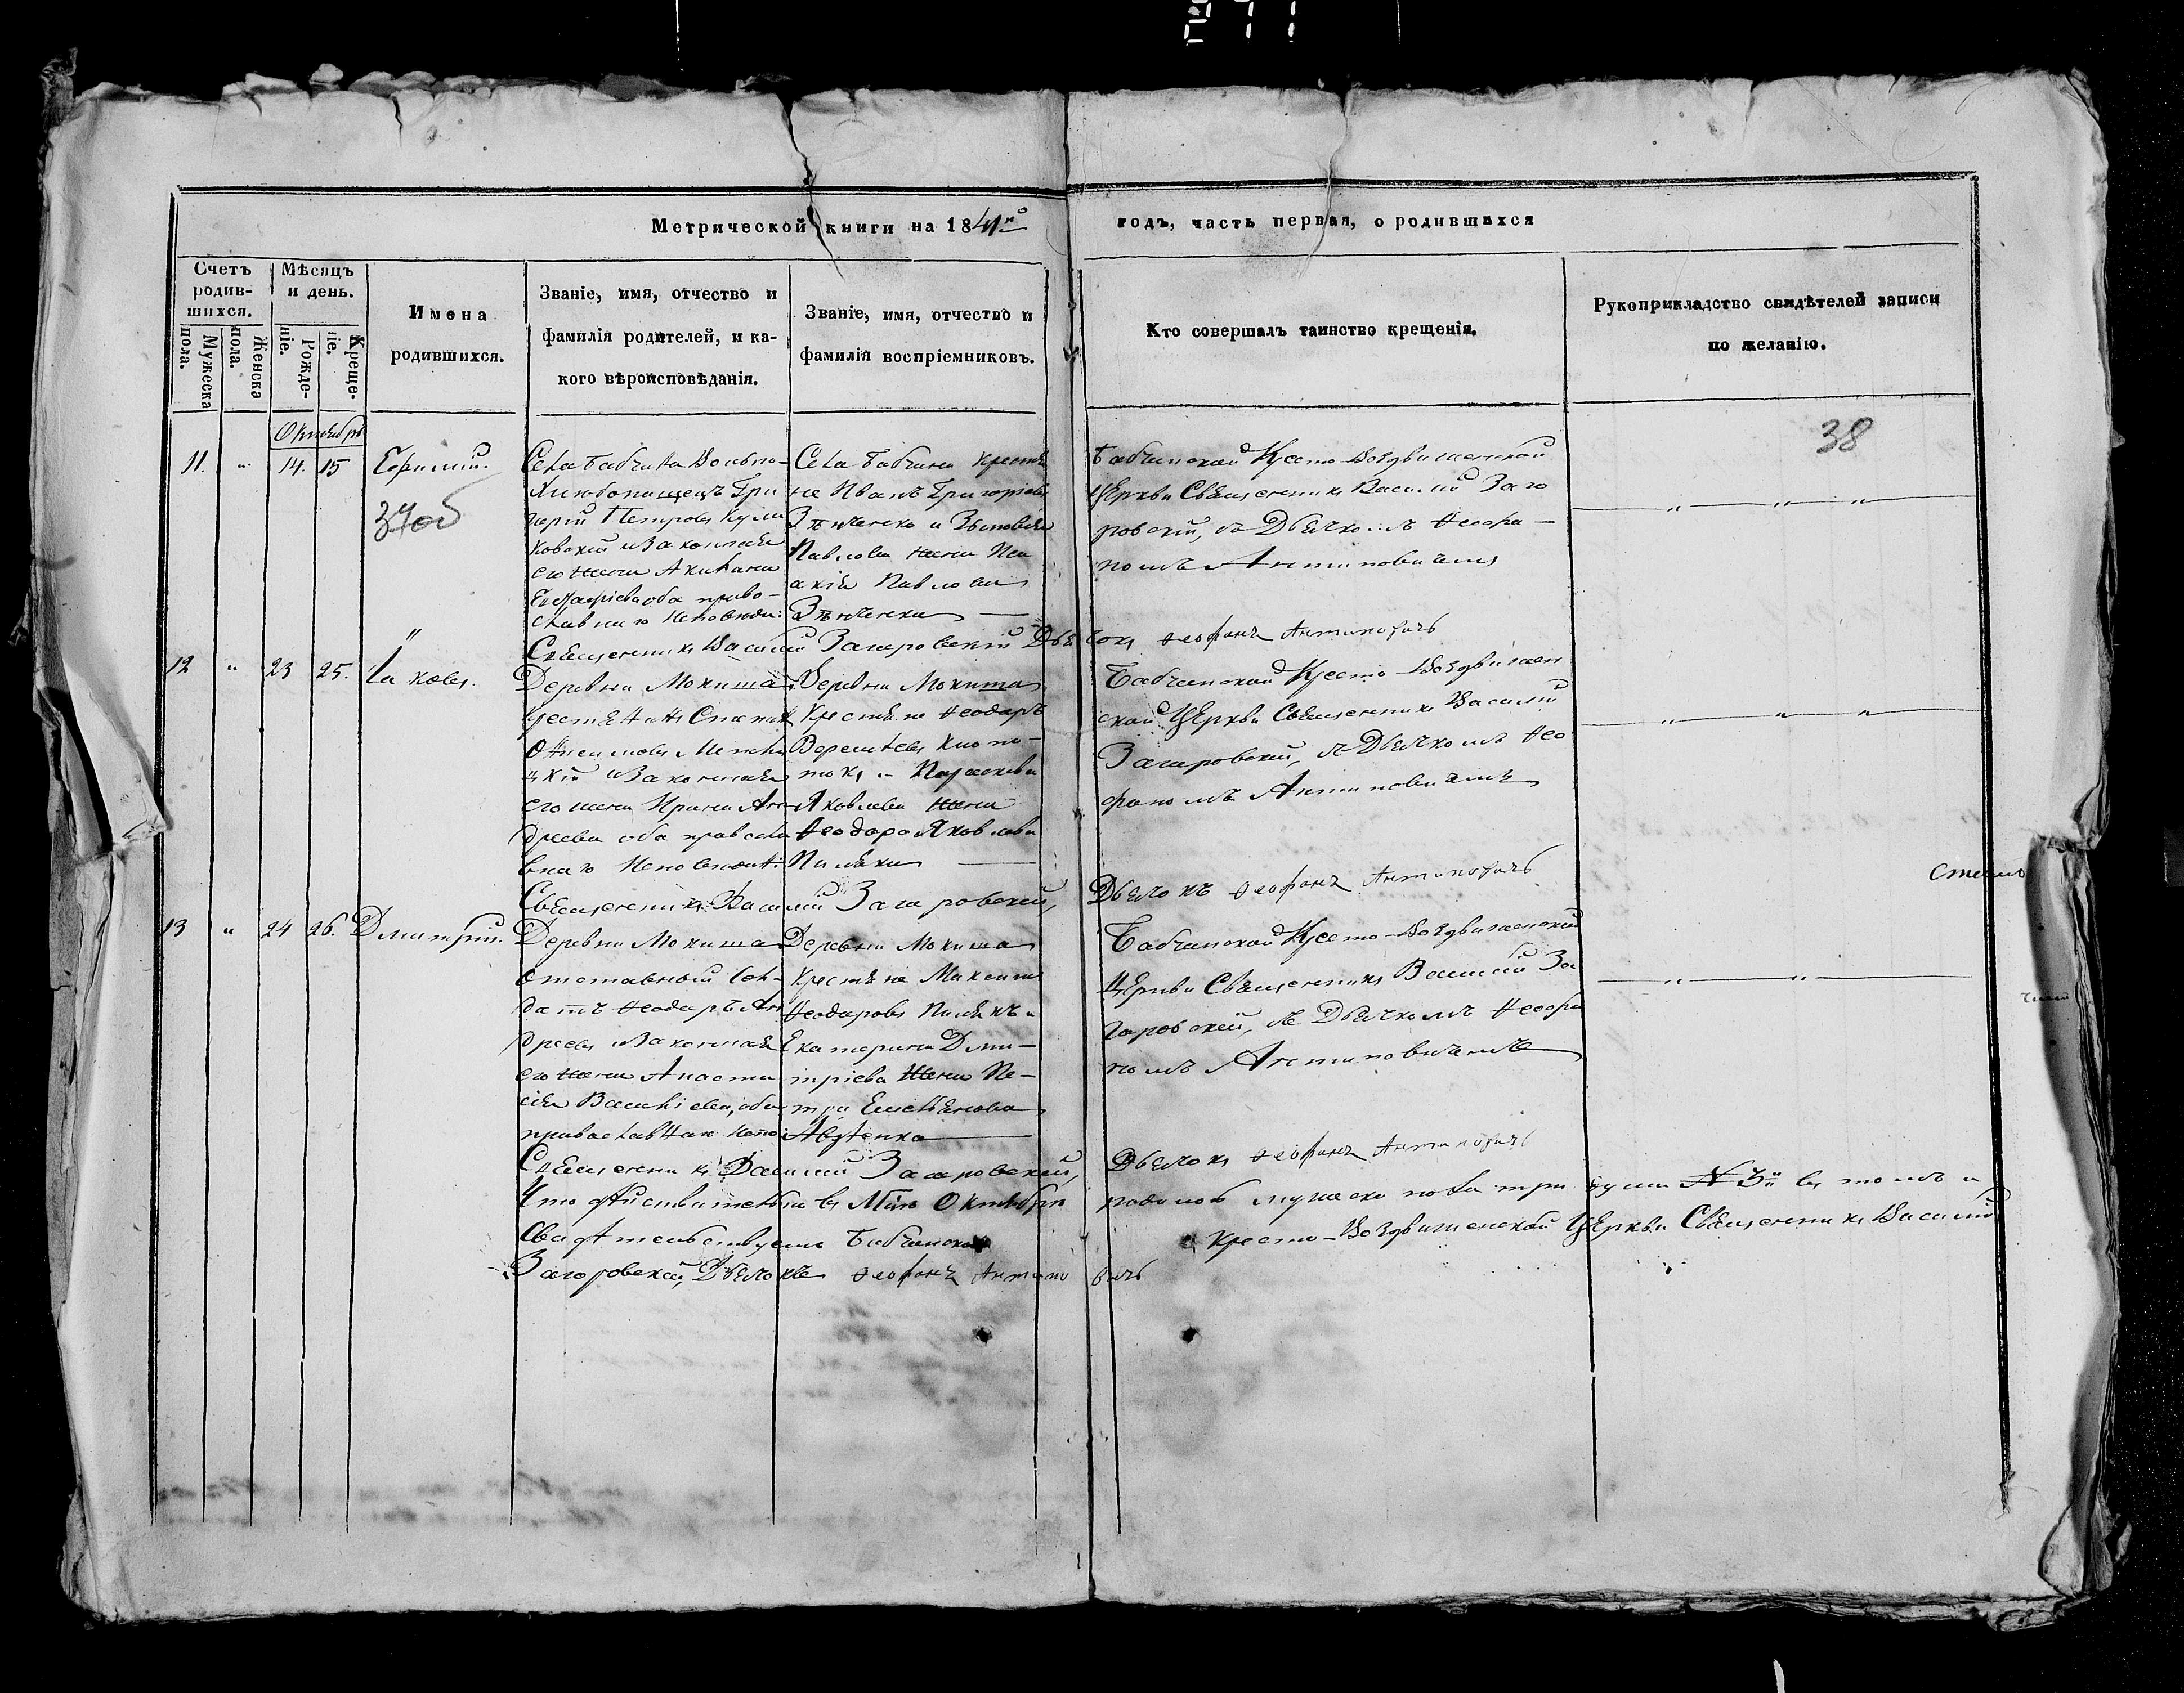 Метрической книги на 1841го
годъ, часть первая, о родившихся
Счетъ родив-шихся.
Мѣсяцъ и день.
Имена
родившихся.
Званіе, имя, отчество и
фамилія родителей, и ка-
кого вѣроисповѣданія.
Званіе, имя, отчество и
фамилія воспріемниковъ.
Кто совершалъ таинство крещенія.
Рукоприкладство свидѣтелей записи
по желанію.
Мужеска пола.
Женска пола.
Рожде-ніе.
Креще-ніе.
38
Октябрь
11. " 14. 15 Ефимій.
37об
Села Бабчина Вольно-
Хлѣбопашецъ Гри
горій Петровъ Кули
ковскій и Законная
его жена Акилина
оба право-
славнаго Исповѣда:
Села Бабчина Крестья
не Иванъ Григоріевъ
Зѣнченко и Зѣновія
Павлова жена
Павлова
Зѣнченка
Бабчинской Кресто-Воздвиженской
Церкви Священникъ Василій Заго
ровскій, съ Дьячкомъ Ѳеофа-
номъ Антиповичемъ
Священникъ Василій Загоровскій Дьячокъ Ѳеофанъ Антиповичъ
12 " 23 25. Іаковъ.
Деревни Мокиша
Крестьянинъ
Онисимовъ
цкій и Законная
его жена Ирина Ан
дреева оба правосла
внаго Исповѣдан:
Деревни Мокиша
Крестьяне Ѳеодоръ
токъ и Параскева
Яковлева жена
Ѳеодора Яковлева
Пиляка
Бабчинской Кресто-Воздвижен
ской Церкви Священникъ Василій
Загоровскій, съ Дьячкомъ Ѳео
фаномъ Антиповичемъ
Священникъ Василій Загоровскій,
Дьячокъ Ѳеофанъ Антиповичъ
13 " 24 26. Дмитрій.
Деревни Мокиша
Отставный Сол-
датъ Ѳеодоръ Ан
дреевъ и Законная
его жена Анаста
сія Васильева, оба
православнаго Испо:
Деревни Мокиша
Крестьяне Максимъ
Ѳеодоровъ Пилякъ и
Екатерина Дми-
тріева жена Пе-
тра Емельянова
Авдѣенка
Бабчинской Кресто-Воздвиженской
Церкви Священникъ Василій За
горовскій, съ Дьячкомъ Ѳеофа
номъ Антиповичемъ
Священникъ Василій Загоровскій,
Дьячокъ Ѳеофанъ Антиповичъ
Что дѣйствительно въ М. Октябрѣ родилось мужеска пола три души № 3й въ томъ и
Свидѣтельствуемъ Бабчинской Кресто-Воздвиженской Церкви Священникъ Василій
Загоровскій, Дьячокъ Ѳеофанъ Антиповичъ